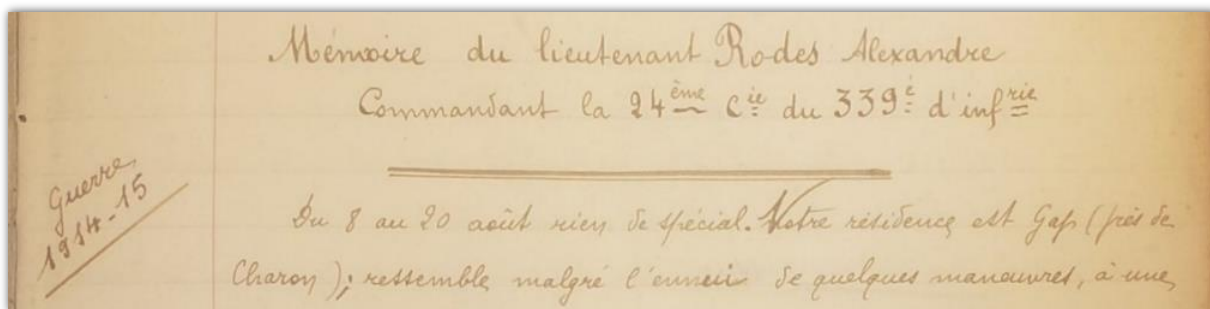 Mémoire du lieutenant Rodes Alexandre
Commandant la 24ème Cie du 339è d'infrie
Guerre
1914-15
Du 8 au 20 août rien de spécial. Notre résidence est Gap (près de
Charon); ressemble malgré l'ennui de quelques manœuvres, à une